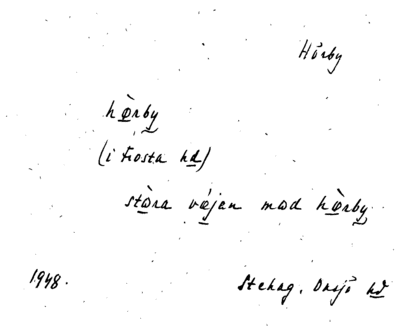 Hörby
hø̀rby
(i Frosta hd)
stòra væ̀jen mæd hø̀rby
1948. Stehag, Onsjö hd